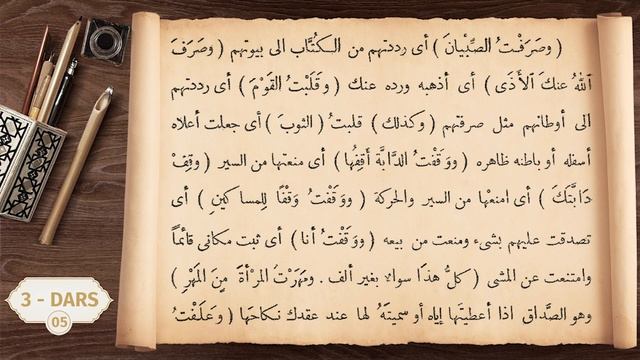 ( وصَرَفْتُ الصِّبْيانَ ) أى رددتهم من الكُتَّاب الى بيوتهم ( وصَرَفَ
اللهُ عنكَ اَلأَذَى ) أى أذهبه ورده عنك ( وقَلَبْتُ القَوْمَ ) أى رددتهم
الى أوطانهم مثل صرفتهم ( وكذلك ) قلبتُ ( الثوبَ ) أى جعلت أعلاه
أسفله أو باطنه ظاهره ( ووَقَفْتُ الدَّابَّةَ أَقِفُها ) أى منعتها من السير ( وقِفْ
دَابَّتَكَ ) أى امنعْها من السير والحركة ( ووَقَفْتُ وَقْفًا لِلمساكينِ ) أى
تصدقت عليهم بشىء ومنعت من بيعه ( ووَقَفْتُ أنا ) أى ثبت مكانى قائماً
وامتنعت عن المشى ( كلُّ هذا سواءٌ بغير ألف . ومَهَرْتُ المرْأةَ مِنَ المَهْرِ )
وهو الصَّداق اذا أعطيتَها إياه أو سميتَهُ لها عند عقدك نكاحَها ( وعَلَفْتُ
3 - DARS
05